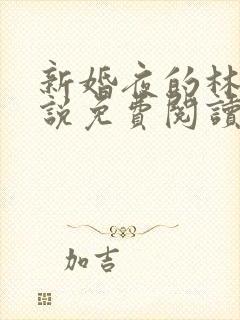 新婚夜的林
說免費閱讀
加吉